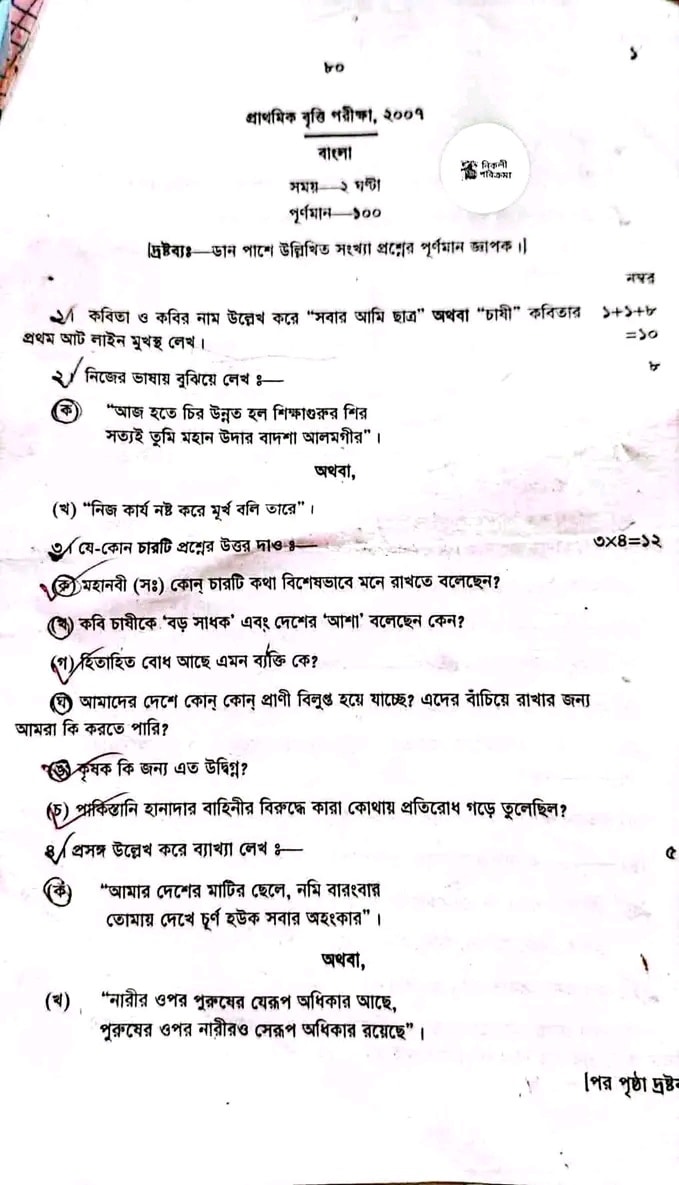 ১
৮০
প্রাথমিক বৃত্তি পরীক্ষা, ২০০৭
বাংলা
নিকলী
পরিক্রমা
সময়—২ ঘণ্টা
পূর্ণমান—১০০
[দ্রষ্টব্যঃ—ডান পাশে উল্লিখিত সংখ্যা প্রশ্নের পূর্ণমান জ্ঞাপক।]
নম্বর
১। কবিতা ও কবির নাম উল্লেখ করে “সবার আমি ছাত্র” অথবা “চাষী” কবিতার ১+১+৮
প্রথম আট লাইন মুখস্থ লেখ। =১০
২। নিজের ভাষায় বুঝিয়ে লেখ ঃ— ৮
(ক) “আজ হতে চির উন্নত হল শিক্ষাগুরুর শির
সত্যই তুমি মহান উদার বাদশা আলমগীর”।
অথবা,
(খ) “নিজ কার্য নষ্ট করে মূর্খ বলি তারে”।
৩। যে-কোন চারটি প্রশ্নের উত্তর দাও ঃ— ৩×৪=১২
(ক) মহানবী (সঃ) কোন্ চারটি কথা বিশেষভাবে মনে রাখতে বলেছেন?
(খ) কবি চাষীকে ‘বড় সাধক’ এবং দেশের ‘আশা’ বলেছেন কেন?
(গ) হিতাহিত বোধ আছে এমন ব্যক্তি কে?
(ঘ) আমাদের দেশে কোন্ কোন্ প্রাণী বিলুপ্ত হয়ে যাচ্ছে? এদের বাঁচিয়ে রাখার জন্য
আমরা কি করতে পারি?
(ঙ) কৃষক কি জন্য এত উদ্বিগ্ন?
(চ) পাকিস্তানি হানাদার বাহিনীর বিরুদ্ধে কারা কোথায় প্রতিরোধ গড়ে তুলেছিল?
৪। প্রসঙ্গ উল্লেখ করে ব্যাখ্যা লেখ ঃ— ৫
(ক) “আমার দেশের মাটির ছেলে, নমি বারংবার
তোমায় দেখে চূর্ণ হউক সবার অহংকার”।
অথবা,
(খ) “নারীর ওপর পুরুষের যেরূপ অধিকার আছে,
পুরুষের ওপর নারীরও সেরূপ অধিকার রয়েছে”।
[পর পৃষ্ঠা দ্রষ্ট